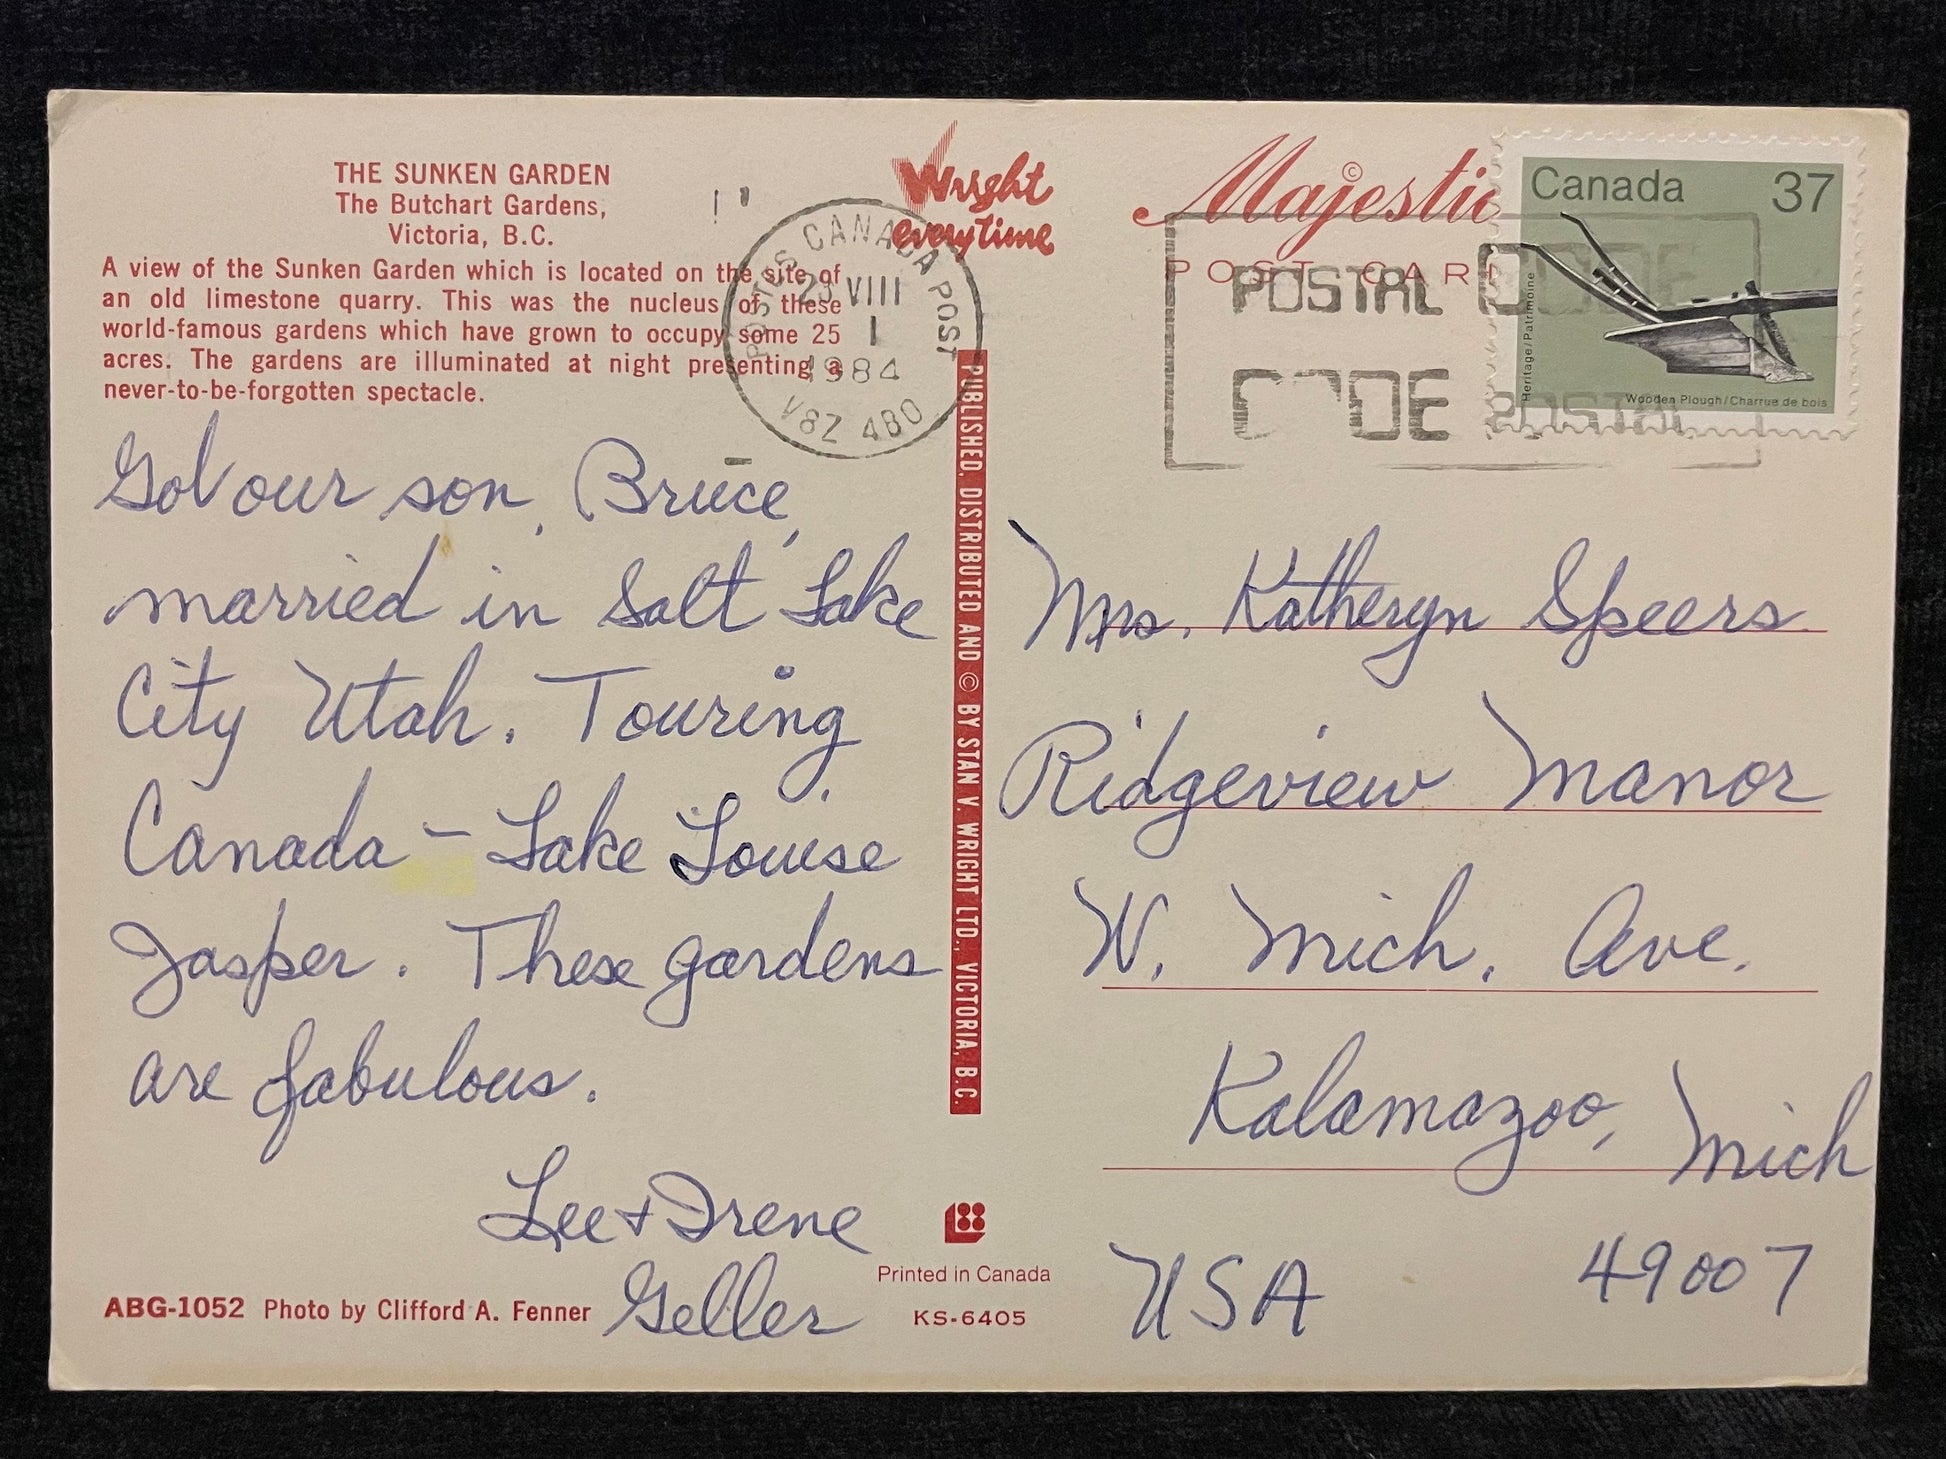 THE SUNKEN GARDEN
The Butchart Gardens,
Victoria, B.C.
A view of the Sunken Garden which is located on the site of
an old limestone quarry. This was the nucleus of these
world-famous gardens which have grown to occupy some 25
acres. The gardens are illuminated at night presenting a
never-to-be-forgotten spectacle.
Got our son, Bruce,
married in Salt Lake
City Utah. Touring
Canada - Lake Louise
Jasper. These gardens
are fabulous.
Lee + Irene
Geller
ABG-1052 Photo by Clifford A. Fenner
Wright
everytime
POSTES CANADA POST
VIII
1
1984
V8Z 4B0
PUBLISHED, DISTRIBUTED AND © BY STAN V. WRIGHT LTD., VICTORIA, B.C.
Printed in Canada
KS-6405
Majestic
©
POST CARD
POSTAL CODE
CODE POSTAL
Canada 37
Heritage/Patrimoine
Wooden Plough/Charrue de bois
Mrs. Katheryn Speers
Ridgeview Manor
W. Mich. Ave.
Kalamazoo, Mich
USA 49007